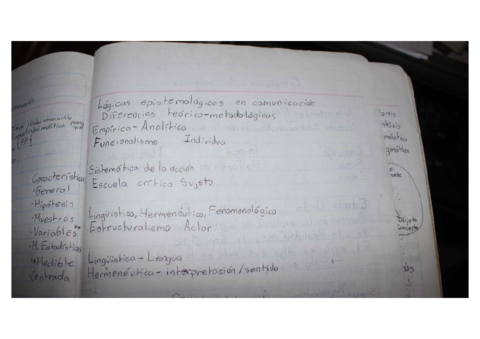 Lógicas epistemológicas en comunicación
Diferencias teórico-metodológicas
Empírico - Analítica
Funcionalismo Individuo
Sistemática de la acción
Escuela crítica Sujeto
Lingüística, Hermenéutica, Fenomenológico
Estructuralismo Actor
Lingüística - Lengua
Hermenéutica - interpretación/sentido
Características
· General
· Hipótesis
· Muestras
· Variables
· M. Estadísticos
· Medible
· Centrada
Objeto